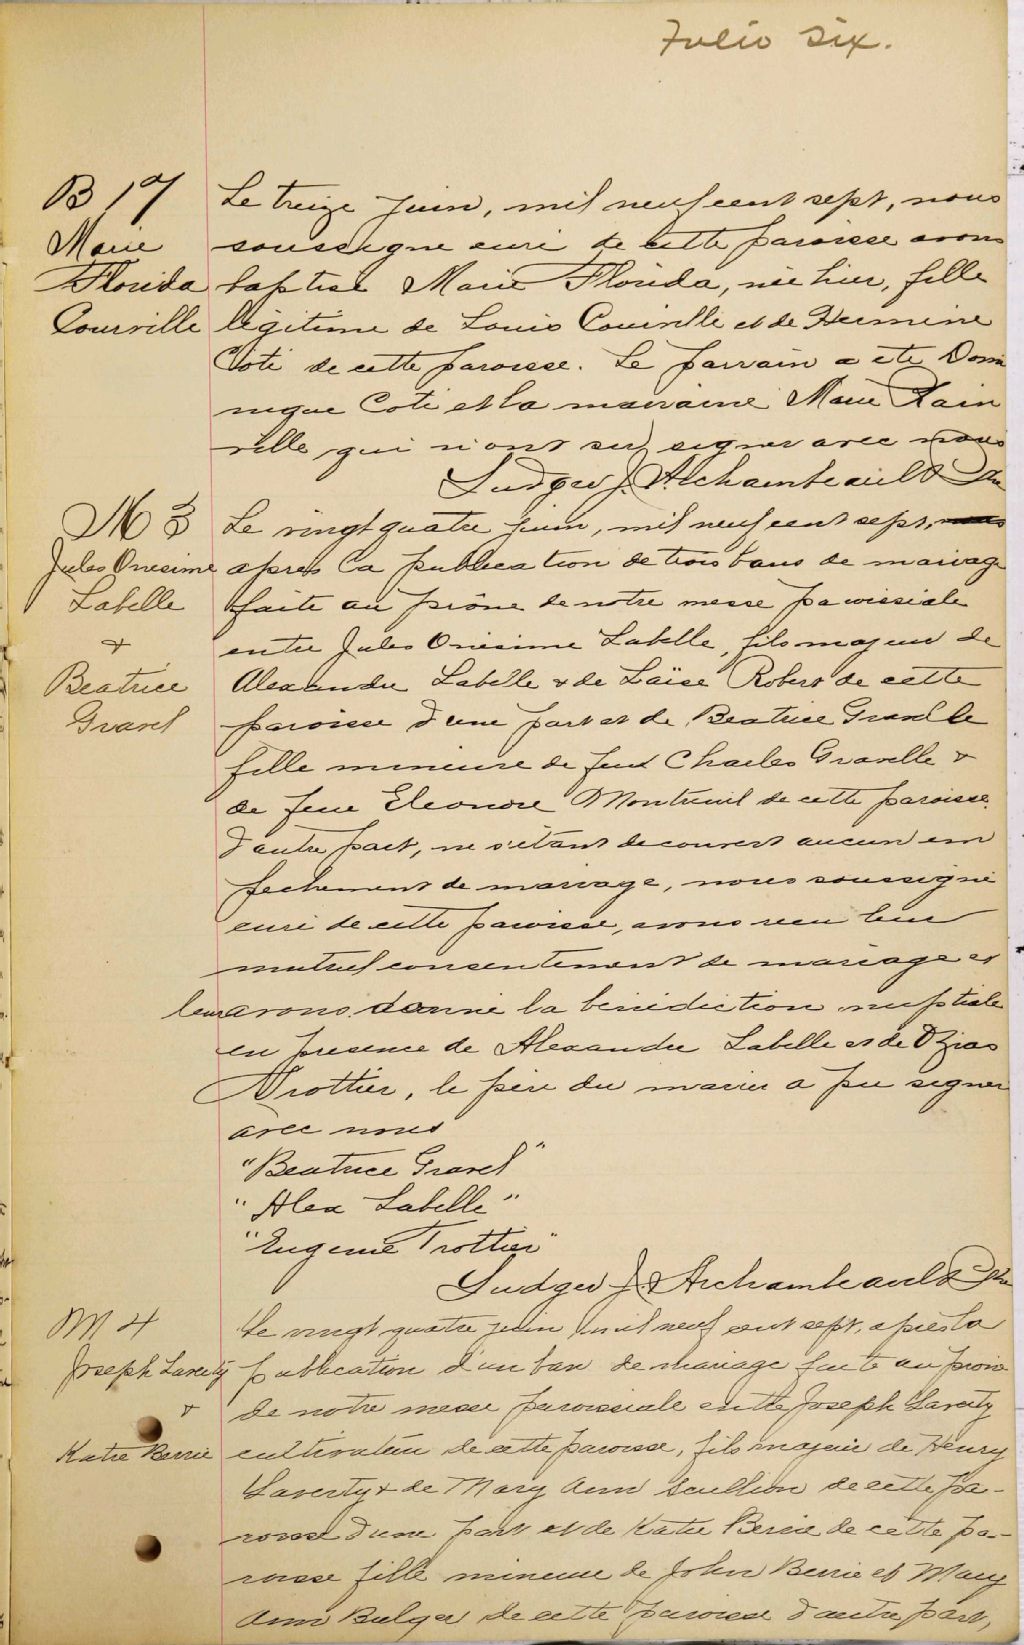 Folio Six.
B 17
Marie
Florida
Courville
Le treize juin, mil neuf cent sept, nous
soussigne curé de cette paroisse avons
baptisé Marie Florida, née hier, fille
légitime de Louis Courville et de Hermine
Coté de cette paroisse. Le parrain a ete Domi
nique Coté et la marraine Marie Rain
ville qui n'ont su signer avec nous
Ludger J. Archambeault Ptre
M 3
Jules Onesime
Labelle
&
Beatrice
Gravel
Le vingt quatre juin, mil neuf cent sept, nous
apres la publication de trois bans de mariage
faite au prône de notre messe paroissiale
entre Jules Onesime Labelle, fils majeur de
Alexandre Labelle & de Laïse Robert de cette
paroisse d'une part et de Beatrice Gravelle
fille mineure de feux Charles Gravelle &
de feue Eleonore Montreuil de cette paroisse
d'autre part, ne s'étant decouvert aucun em
pechement de mariage, nous soussigné
curé de cette paroisse, avons recu leur
mutuel consentement de mariage et
leur avons donné la bénédiction nuptiale
en presence de Alexandre Labelle et de Ozias
Trottier, le père du marier a pu signer
avec nous
"Beatrice Gravel"
"Alex Labelle"
"Eugenie Trottier"
Ludger J. Archambeault Ptre
M 4
Joseph Laverty
&
Katie Berrie
Le vingt quatre juin mil neuf cent sept, après la
publication d'un ban de mariage faite au prone
de notre messe paroissiale entre Joseph Laverty
cultivateur de cette paroisse, fils majeur de Henry
Laverty & de Mary Ann Scullion de cette pa-
roisse d'une part et de Katie Berrie de cette pa-
roisse fille mineure de John Berrie et Mary
Ann Bulger de cette paroisse d'autre part,